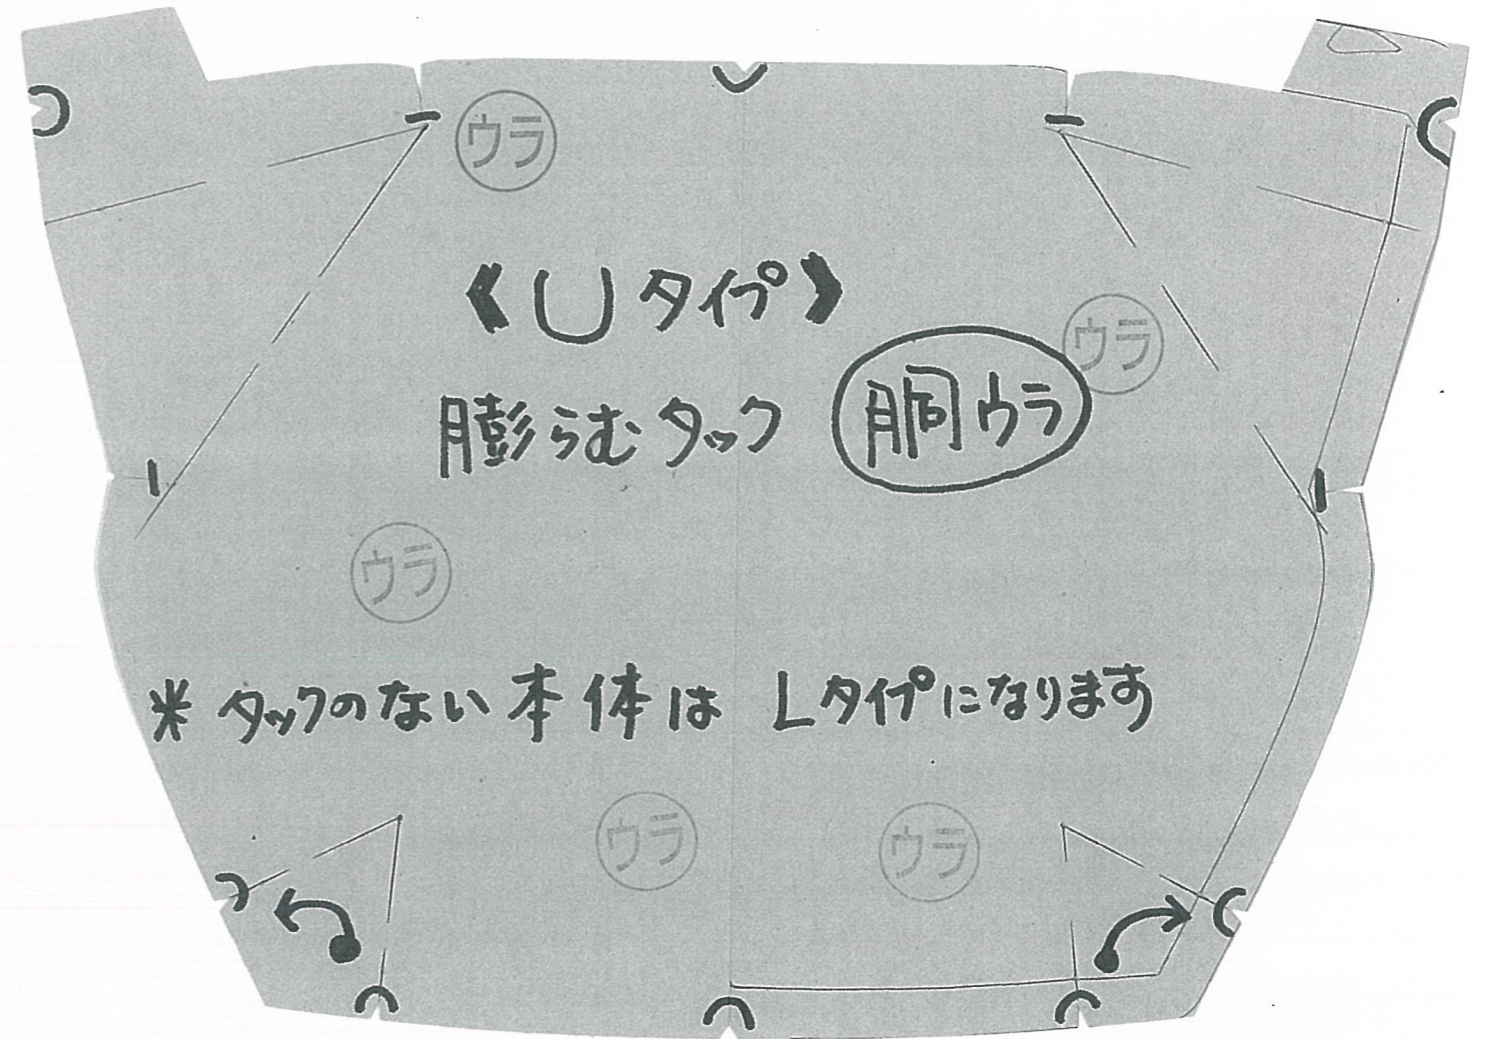 ウラ
《Uタイプ》
ウラ
膨らむタック 胴ウラ
ウラ
※タックのない本体は Lタイプになります
ウラ
ウラ